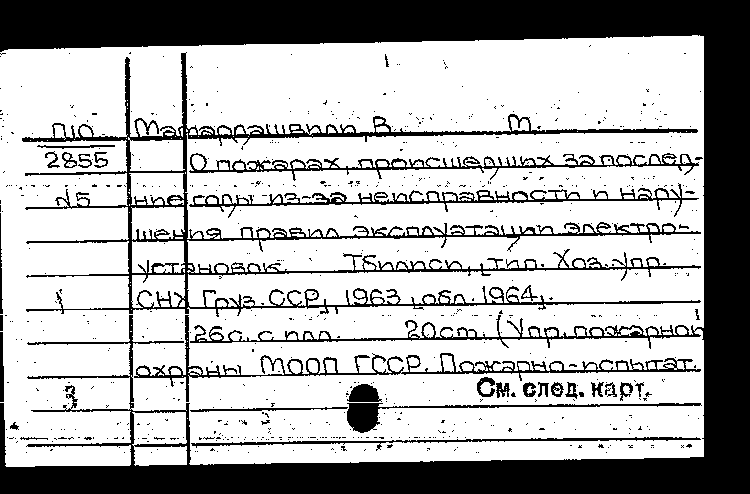 П10 Матарлашвили, В. М.
2855 О пожарах, происшедших за послед-
√5 ние годы из-за неисправности и нару-
шения правил эксплуатации электро-
установок. Тбилиси, [тип. Хоз. упр.
СНХ Груз. ССР], 1963 [обл. 1964].
26с. с илл. 20 см. (Упр. пожарной
охраны МООП ГССР. Пожарно-испытат.
3 См. след. карт.